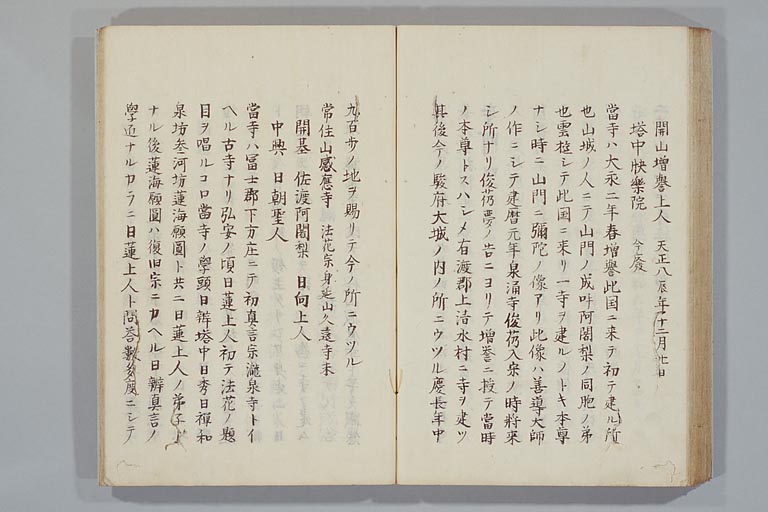 開山増譽上人 天正八辰年十二月廿日
塔中快樂院 今廢
當寺ハ大永二年春増譽此国ニ来テ初テ建ル所
也山城ノ人ニテ山門ノ成呼阿闍梨ノ同胞ノ弟
也雲遊シテ此国ニ来リ一寺ヲ建ルノトキ本尊
ナシ時ニ山門ニ彌陀ノ像アリ此像ハ善導大師
ノ作ニシテ建暦元年泉涌寺俊芿入宋ノ時將来
シ所ナリ俊芿夢ノ告ニヨリテ増譽ニ授テ當時
ノ本尊トスハシメ有渡郡上清水村ニ寺ヲ建ツ
其後今ノ駿府大城ノ内ノ所ニウツル慶長年中
九百歩ノ地ヲ賜リテ今ノ所ニウツル
常住山感應寺 法花宗身延山久遠寺末
開基 佐渡阿闍梨 日向上人
中興 日朝聖人
當寺ハ冨士郡下方庄ニテ初真言宗瀧泉寺トイ
ヘル古寺ナリ弘安ノ頃日蓮上人初テ法花ノ題
目ヲ唱ルコロ當寺ノ學頭日辨塔中日秀日禪和
泉坊叅河坊蓮海願圓ト共ニ日蓮上人ノ弟子ト
ナル後蓮海願圓ハ復旧宗ニカヘル日辨真言ノ
學匠ナルカラニ日蓮上人ト問荅數多度ニシテ